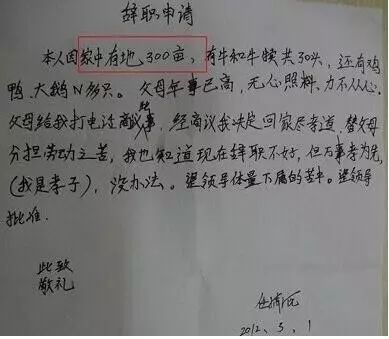 辞职申请
本人因家中有地300亩,有牛和牛犊共30头,还有鸡
鸭、大鹅N多只。父母年事已高,无心照料、力不从心。
父母给我打电话商议此事,经商议我决定回家尽孝道,替父母
分担劳动之苦,我也知道现在辞职不好,但万事孝为先,
(我是孝子),没办法。望领导体量下属的苦中。望领导
批准.
此致
敬礼
2012、3、1